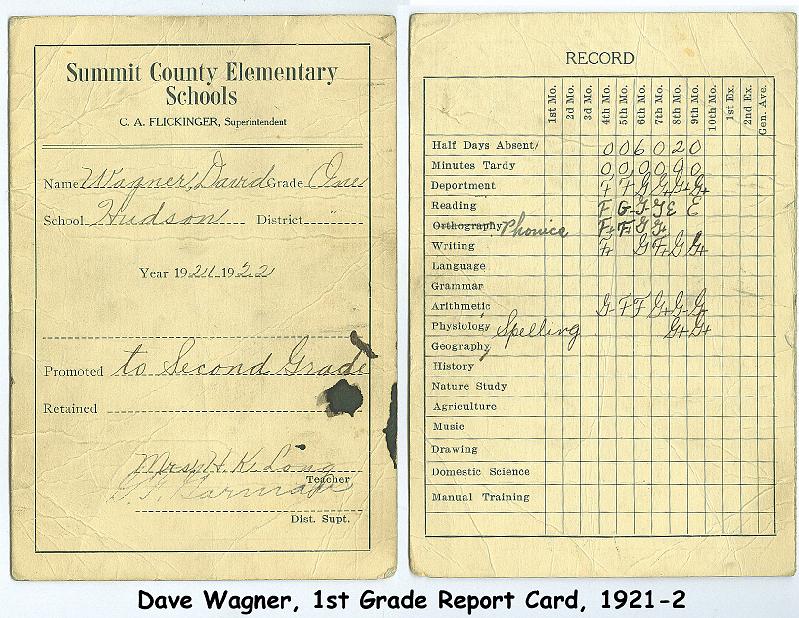 Summit County Elementary
Schools
C. A. FLICKINGER, Superintendent
Name Wagner, David Grade One
School Hudson District
Year 1921 1922
Promoted to Second Grade
Retained
Mrs. H. K. Long
Teacher
Dist. Supt.
RECORD
1st Mo. 2d Mo. 3d Mo. 4th Mo. 5th Mo. 6th Mo. 7th Mo. 8th Mo. 9th Mo. 10th Mo. 1st Ex. 2nd Ex. Gen. Ave.
Half Days Absent 0 0 6 0 2 0
Minutes Tardy 0 0 0 0 0 0
Deportment F F G G+ G+ G+
Reading F G- G- G E E
Orthography Phonics F+ F+ G G+
Writing F+ G F+ G G+
Language
Grammar
Arithmetic G- F F G+ G- G-
Physiology Spelling G+ G+
Geography
History
Nature Study
Agriculture
Music
Drawing
Domestic Science
Manual Training
Dave Wagner, 1st Grade Report Card, 1921-2